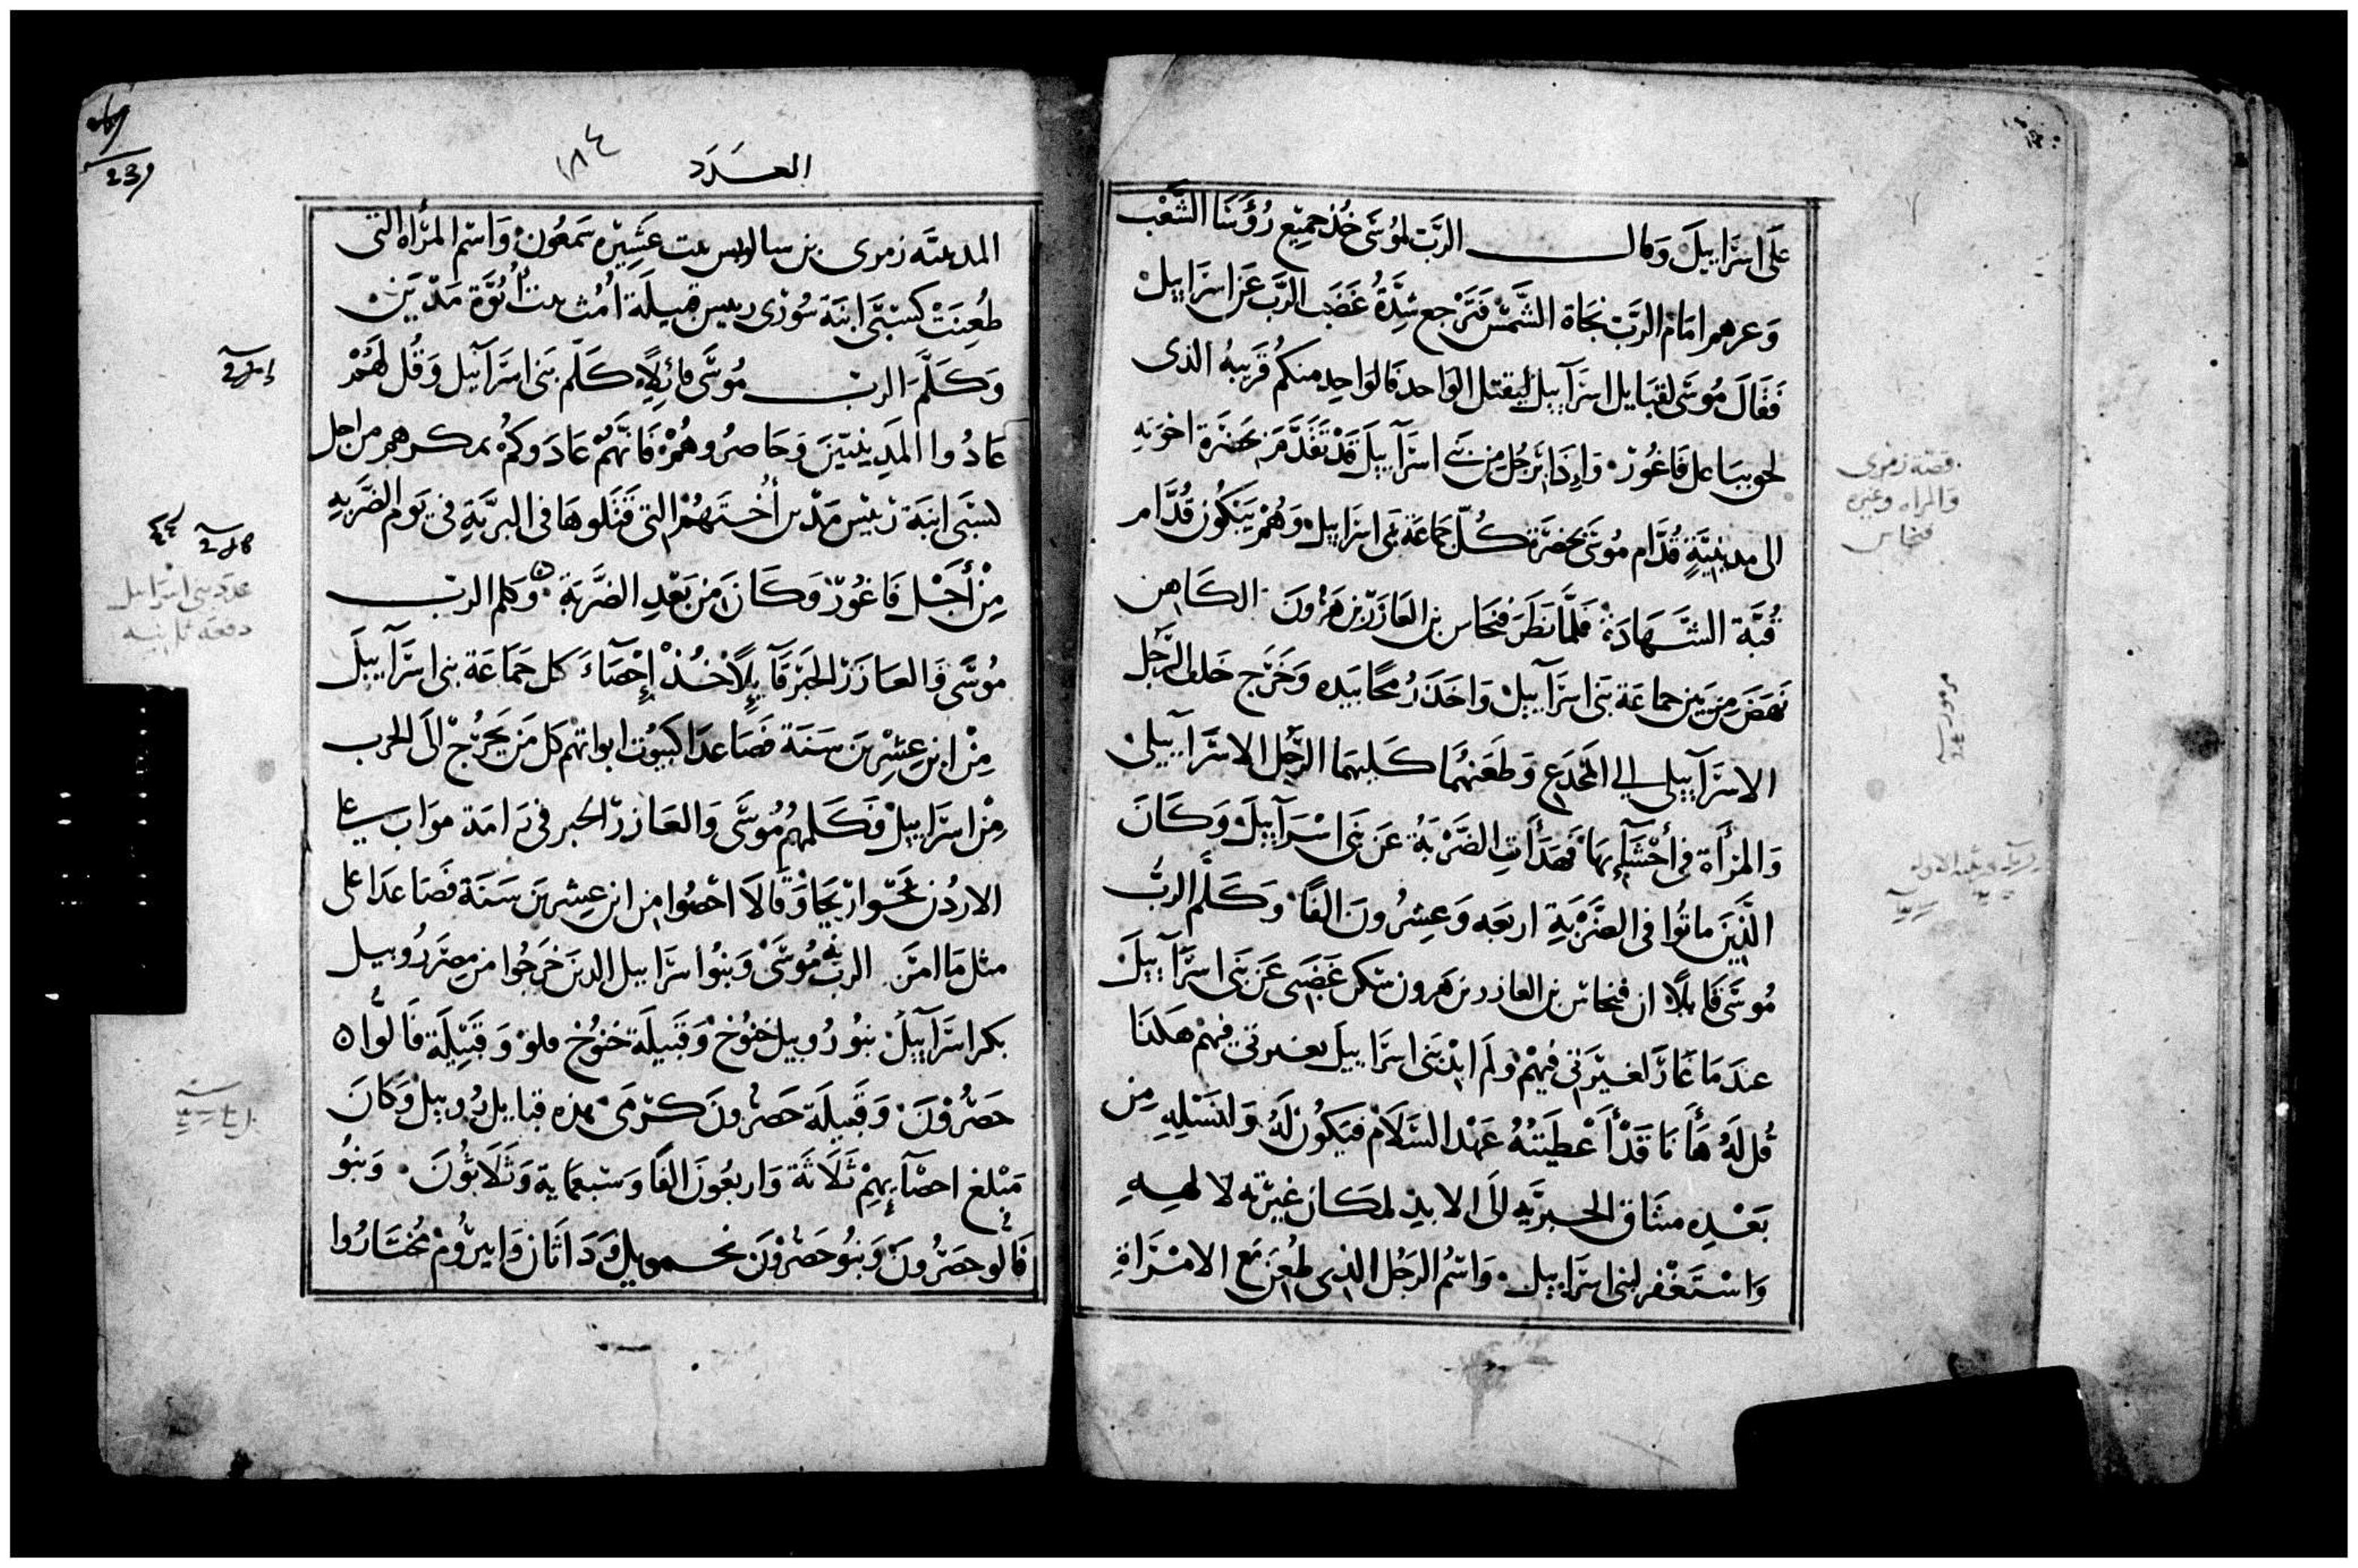 على اسرابيل وقال الرب لموسى خذ جميع رؤسا الشعب
وعرهم امام الرب تجاة الشمس فترجع شدة غضب الرب عن اسرابيل
فقال موسى لقبايل اسرآبيل ليقتل الواحد فالواحد منكم قريبه الذى
على فاغور واذا برجل من بنى اسرآبيل قد تقدم بحضرة اخوته
الى مدينية قدام موسى بحضرة كل جماعة بنى اسرابيل وهم يبكون قدام
قبة الشهادة فلما نظر فنحاس بن العازر بن هرون الكاهن
نهض من بين جماعة بنى اسرآبيل واخذ رمحا بيده وخرج خلف الرجل
الاسرآبيلى الي المخدع وطعنهما كليهما الرجل الاسرآبيلى
والمرأة فى أحشآئها فهدأت الضربة عن بنى اسرآبيل وكان
الذين ماتوا فى الضربة اربعه وعشرون الفا وكلم الرب
موسى قايلا ان فنحاس بن العازر بن هرون سكن غضبى عن بنى اسرآبيل
عندما غار لغيرتى فيهم ولم ابد بنى اسرابيل بغيرتى فيهم هكذا
قل له هأنا قد أعطيته عهد السلام فيكون له ولنسله من
بعده ميثاق الحبرية الى الابد لمكان غيرته لالهه
واستغفر لبنى اسرابيل واسم الرجل الذى طعن مع الامرأة
قصة زمرى
والمراه وغيره
فنحاس
العدد
١٨٤
239
المدينيه زمرى بن بيت عشيره سمعون واسم المرأه التى
طعنت كسبى ابنة سورى رييس قبيلة امث بيت أبوة مدين
وكلم الرب موسى قائلاً كلم بنى اسرآئيل وقل لهم
عادوا المدينيين وحاصروهم فانهم عادوكم بمكرهم من اجل
كسبى ابنة رئيس مدين أختهم التى قتلوها فى البرية فى يوم الضربه
من أجل فاغور وكان من بعد الضربة وكلم الرب
موسى والعازر الحبر قآيلاً خذ إحصآء كل جماعة بنى اسرآبيل
من ابن عشرين سنة فصاعدا لبيوت ابواتهم كل من يخرج الى الحرب
من اسرابيل فكلمهم موسى والعازر الحبر فى رامة مواب على
الاردن نحو اريحا وقالا احصوا من ابن عشرين سنة فصاعدا على
مثل ما امر الرب موسى وبنوا سرابيل الذين خرجوا من مصر روبيل
بكر اسرآبيل بنو روبيل خنوخ وقبيلة خنوخ فلو وقبيلة فالوا
حصرون وقبيلة حصرون كرمى هذه قبايل روبيل وكان
مبلغ احصآئهم ثلاثة واربعون الفا وسبعماية وثلاثون وبنو
فالو حصرون وبنو حصرون نحمويل وداثان وابيروم مختاروا
عدد بنى اسرابيل
دفعه ثانيه